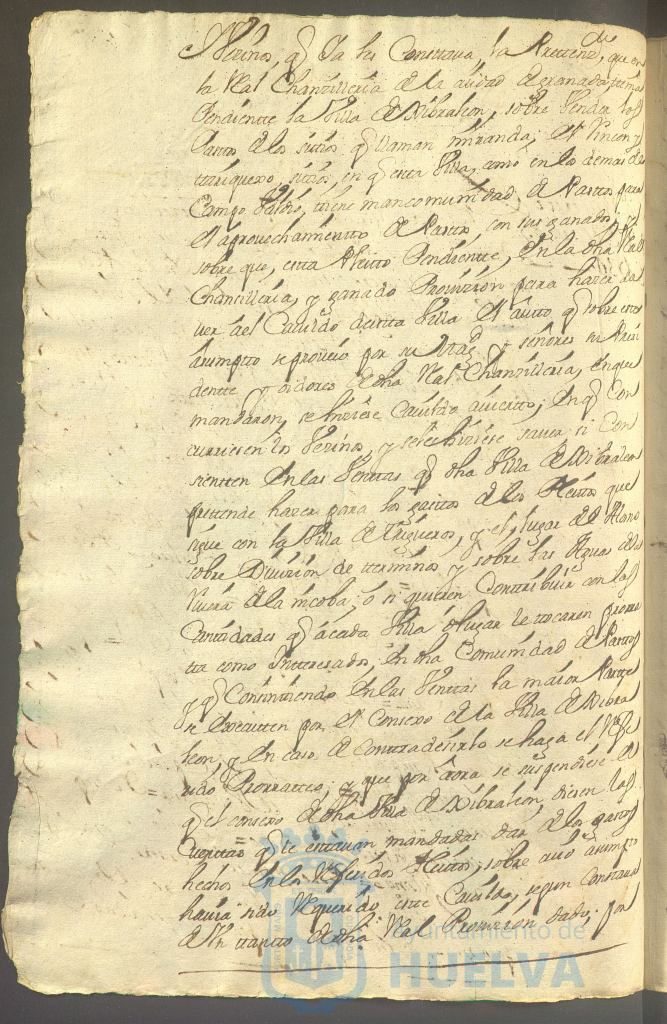 Vezinos, q̃ Ya les Constava, la Pretenz.on, que en
la Real Chanzilleria de la ciudad de granada tenia
Pendiente la Villa de Xibraleon, sobre Vender los
Pastos de los sitios q̃ llaman miranda, el Rincon, y
sitios, en q̃ esta Villa, como en los demas de
Campo Valdio, tiene mancomunidad, de Pastos, para
el aprovechamiento de Pastos, con sus ganados; y
sobre que, esta Pleito Pendiente, en la dha Real
Chanzilleria, y ganado Provizion para hazer sa
ver ael Cavildo desta Villa el auto q̃ sobre este
asumpto se proveio por su Mtad y señores su Presi
dente y oidores de dha Real Chanzilleria, en que
mandaron, se hiziese Cavildo avierto, en q̃ Con
curriesen los Vezinos, y se les hiziese saver, si Con
sienten en las Ventas q̃ dha Villa de Xibraleon
pretende hazer para los gastos de los Pleitos que
sigue con la Villa de Trigueros, y el lugar del Alosno
sobre Divizion de terminos y sobre las Aguas de la
Rivera de la nicoba, o si quieren Contribuir con las
Cantidades q̃ a cada Villa o lugar le tocaren prorra
ta como Ynteresados, en dha Comunidad de Pastos
y q̃ Consintiendo en las Ventas la maior Parte
se executen por el Consexo de la Villa de Xibra
leon, y en caso de Contradesirlo se haga el Refe
rido Prorrateo; y que por aora se suspendiese el
q̃ el consexo de dha Villa de Xibraleon, diesen las
Cuentas q̃ le estavan mandadas dar de los gastos
hechos en los Referidos Pleitos; sobre cuio asumpto
havia sido Requerido este Cavildo, segun Constava
de Vn tanto de dha Real Provizion dado, por
Ayuntamiento de
HUELVA